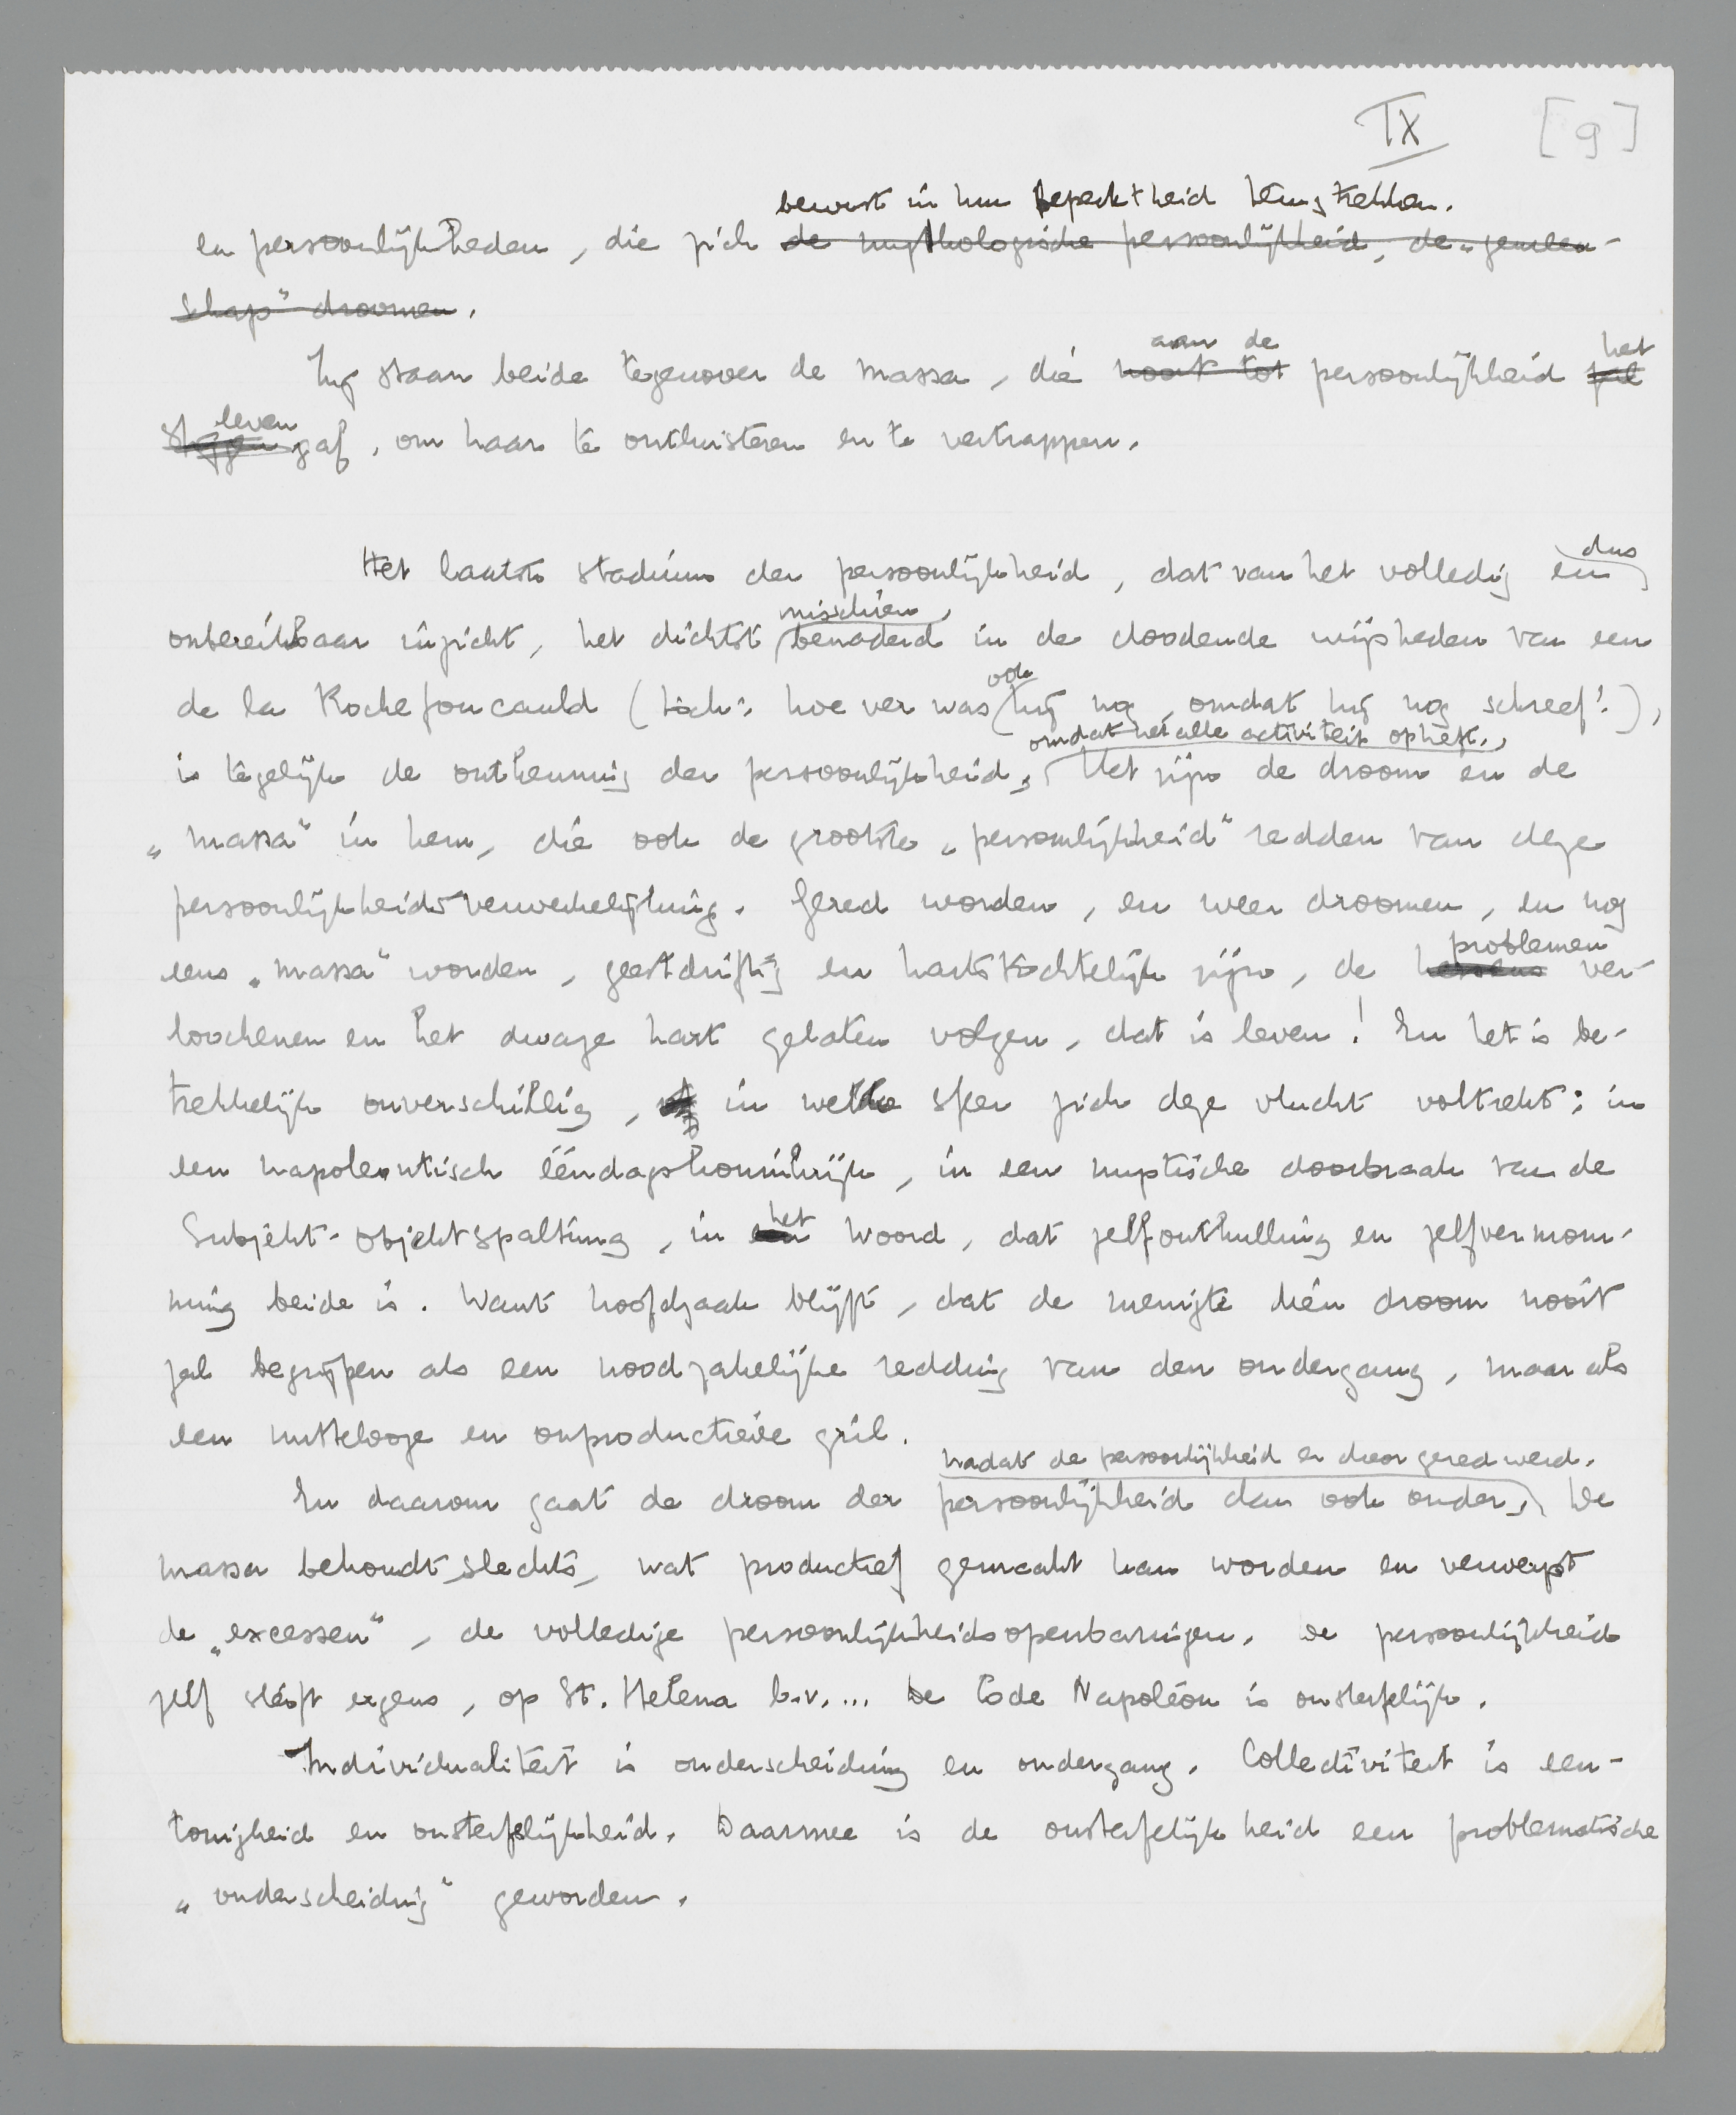 IX [9]
bewust in hun beperktheid terugtrekken.
en persoonlijkheden, die zich de mythologische persoonlijkheid, de „gemeen-
schap" droomen.
aan de het
Zij staan beide tegenover de massa, die nooit tot persoonlijkheid zal
leven
stijgen gaf, om haar te ontluisteren en te vertrappen.
dus
Het laatste stadium der persoonlijkheid, dat van het volledig en
misschien
onbereikbaar inzicht, het dichtst benaderd in de doodende wijsheden van een
ook
de la Rochefoucauld (toch: hoe ver was hij nog, omdat hij nog schreef!),
omdat het alle activiteit opheft.
is tegelijk de ontkenning der persoonlijkheid, Het zijn de droom en de
„massa" in hem, die ook de grootste „persoonlijkheid" redden van deze
persoonlijkheidsverwerkelijking. Gered worden, en weer droomen, en nog
problemen
eens „massa" worden, geestdriftig en hartstochtelijk zijn, de hersens ver-
loochenen en het dwaze hart gelaten volgen, dat is leven! En het is be-
trekkelijk onverschillig, in welke sfeer zich deze vlucht voltrekt: in
een napoleontisch ééndagskoninkrijk, in een mystische doorbraak van de
het
Subjekt-objektspaltung, in een woord, dat zelfonthulling en zelfvermom-
ming beide is. Want hoofdzaak blijft, dat de menigte dién droom nooit
zal begrijpen als een noodzakelijke redding van den ondergang, maar als
een nuttelooze en onproductieve gril.
nadat de persoonlijkheid er door gered werd.
En daarom gaat de droom der persoonlijkheid dan ook onder, De
massa behoudt slechts, wat productief gemaakt kan worden en verwerpt
de „excessen", de volledige persoonlijkheidsopenbaringen. De persoonlijkheid
zelf sterft ergens, op St. Helena b.v.... De Code Napoléon is onsterfelijk.
Individualiteit is onderscheiding en ondergang. Collectiviteit is een-
tonigheid en onsterfelijkheid. Daarmee is de onsterfelijkheid een problematische
„onderscheiding" geworden.